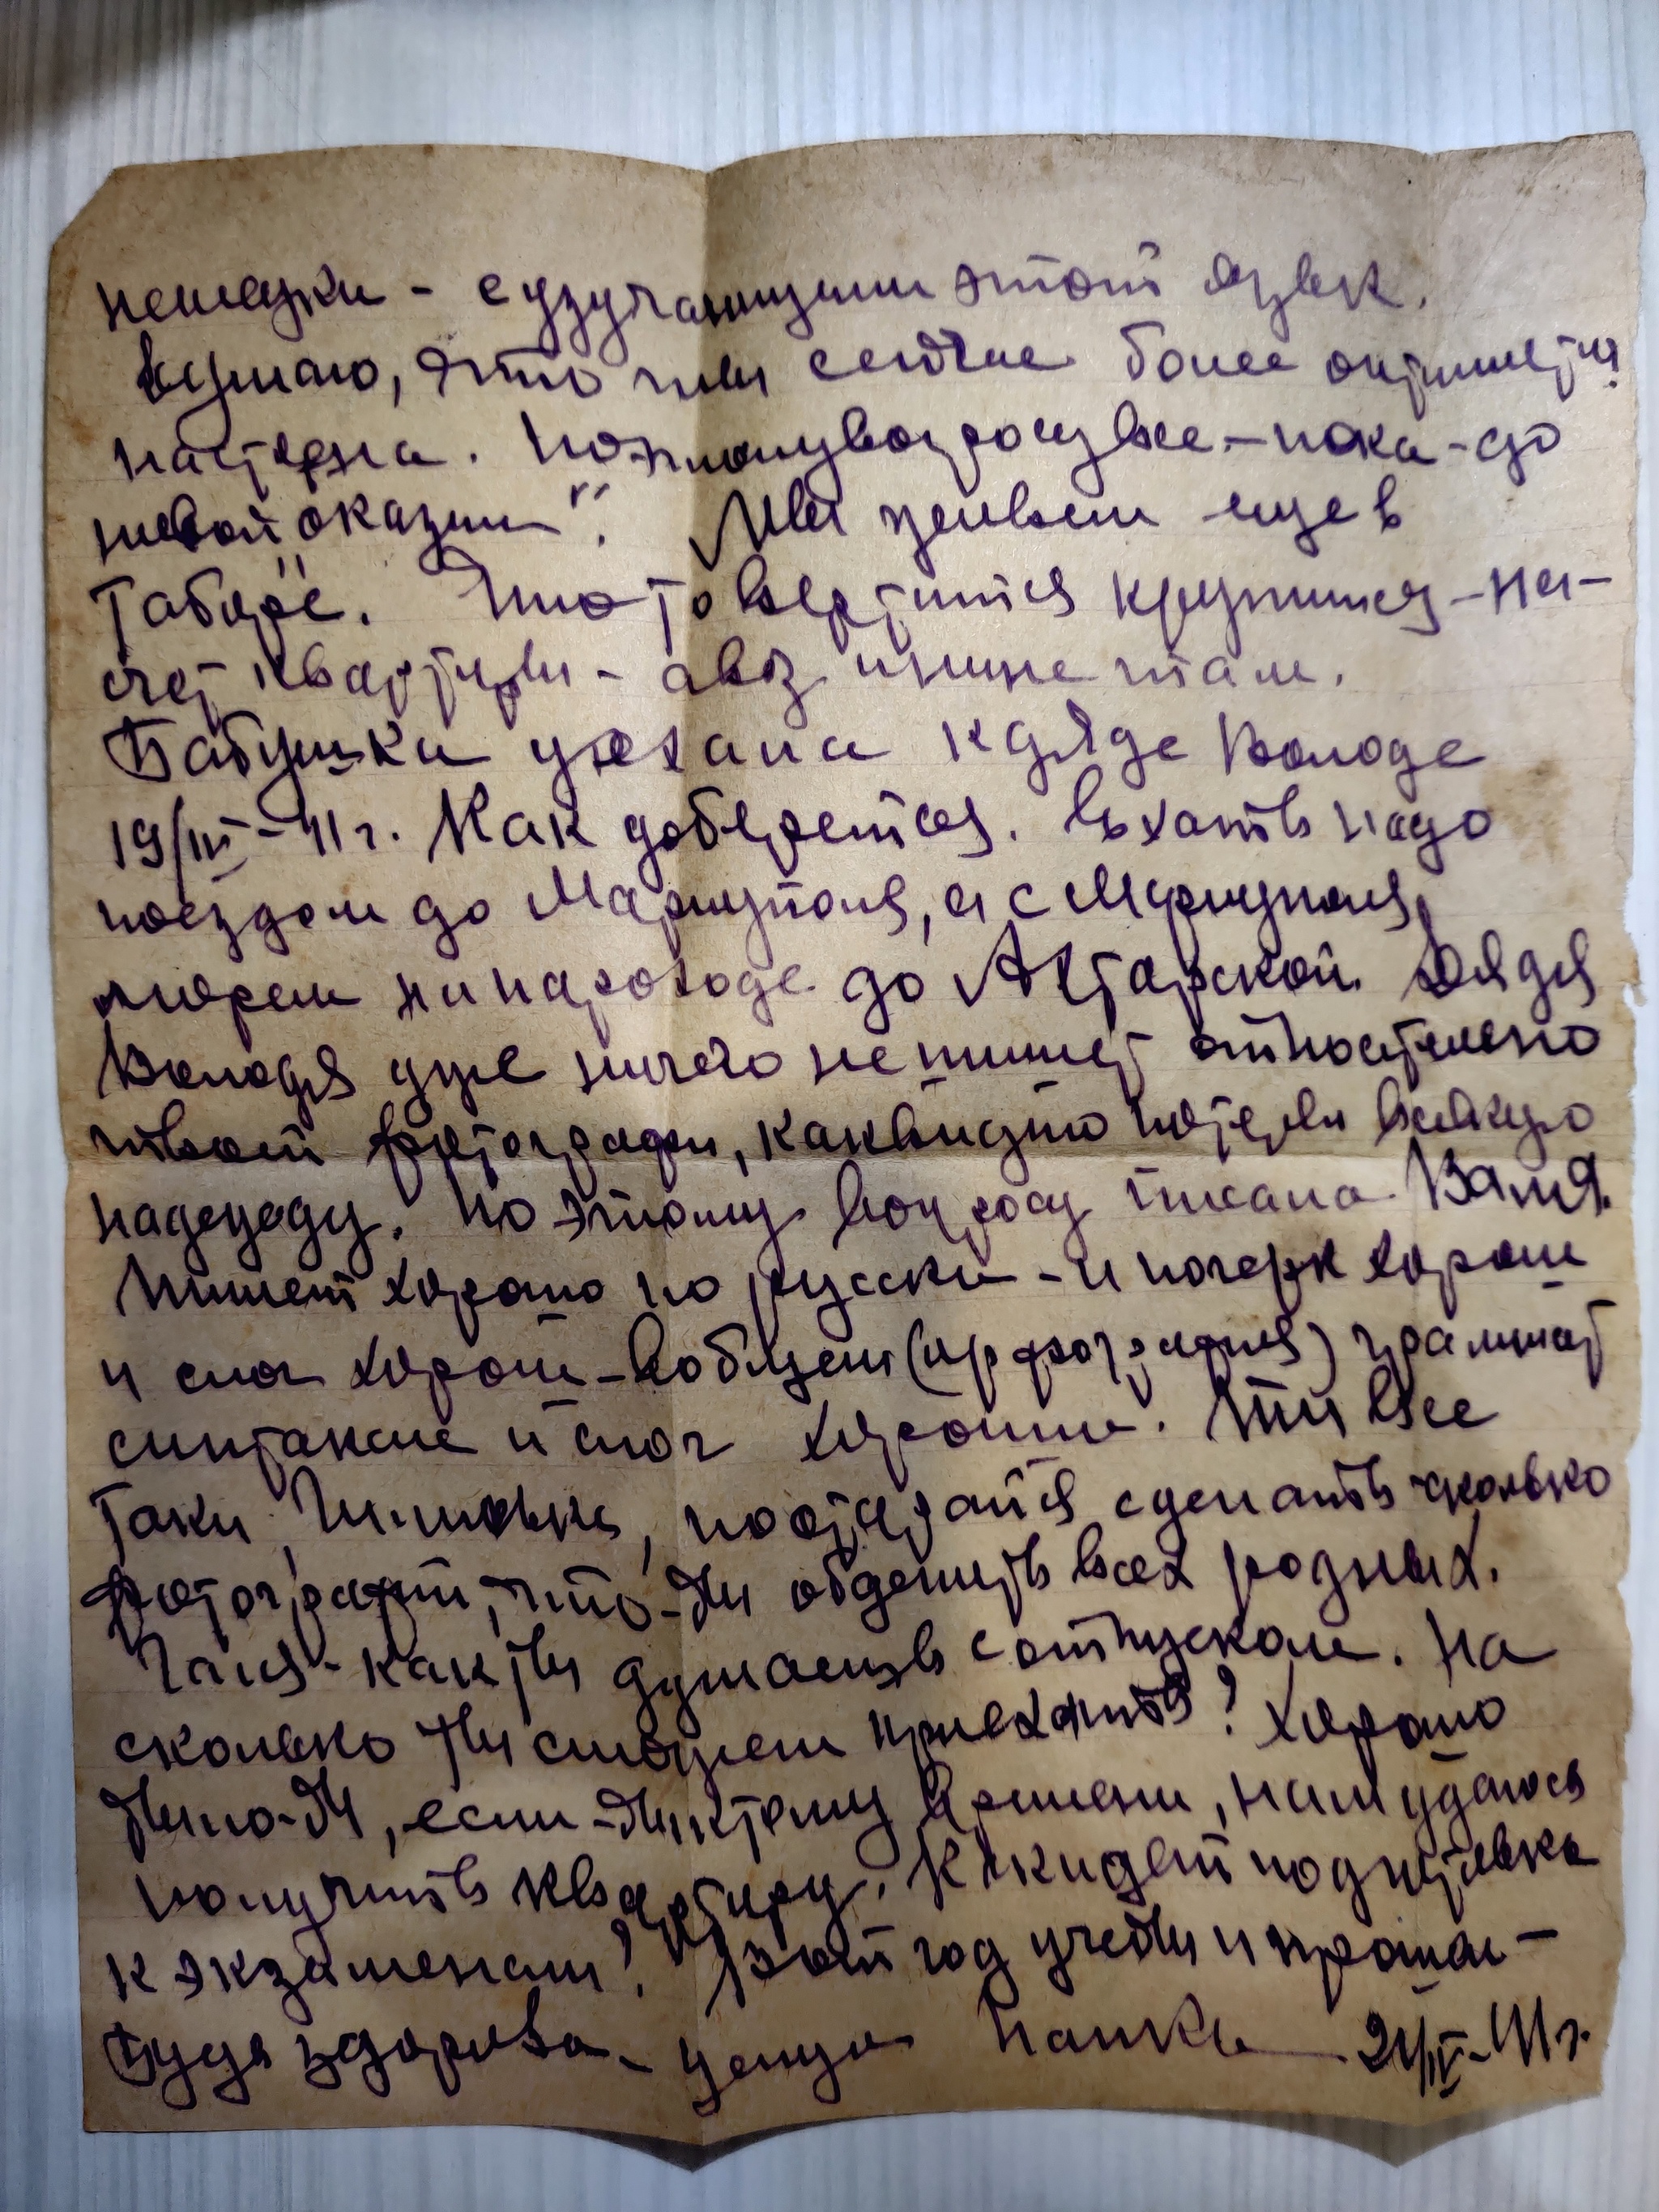 немецки - с изучающими этот язык.
Думаю, что ты сейчас более оптимист.
настроена. По этому вопросу все. - пока - до
новой оказии". Мы живем еще в
Таборе. Что то вертится крутится - на-
счет квартиры - а воз и ныне там.
Бабушка уехала к дяде Володе
19/IV-41 г. Как доберется. Ехать надо
поездом до Мариуполя, а с Мариуполя,
морем на пароходе до Ахтарской. Дядя
Володя уже ничего не пишет относительно
твоей фотографии, как видно потерял всякую
надежду. По этому вопросу писала Валя.
Пишет хорошо по русски - и почерк хорош
и слог хорош - вобщем (орфография) грамот
синтаксис и слог хороши. Ты все
таки, постарайся сделать сколько
фотографий, что-бы обделить всех родных.
Галя - как ты думаешь с отпуском. На
сколько ты сможешь приехать? Хорошо
было-бы, если-бы к тому времени, нам удалось
получить квартиру. Как идет подготовка
к экзаменам? Вот год учебы и прошел -
Будь здорова - целую Папка 24/IV-41 г.